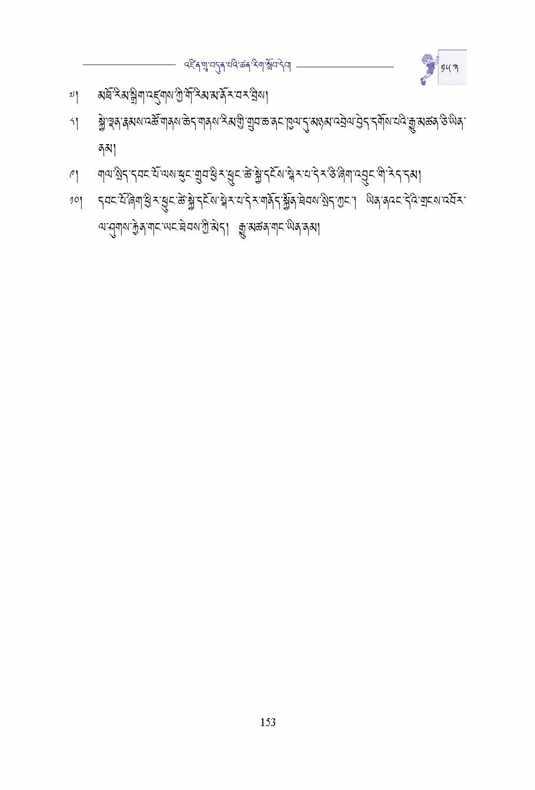 འཛིན་གྲྭ་བདུན་པའི་ཚན་རིག་སློབ་དེབ།
༡༥༣
༧། མཐོ་རིམ་སྒྲིག་འཛུགས་ཀྱི་གོ་རིམ་མ་ནོར་བར་བྲིས།
༨། སྐྱེ་ལྡན་རྣམས་འཚོ་གནས་ཆེད་གནས་རིམ་གྱི་གྲུབ་ཆ་ནང་ཁུལ་དུ་མཉམ་འབྲེལ་བྱེད་དགོས་པའི་རྒྱུ་མཚན་ཅི་ཡིན་
ནམ།
༩། གལ་སྲིད་དབང་པོ་ལས་ཕུང་གྲུབ་ཕྱིར་ཕྱུང་ཚེ་སྐྱེ་དངོས་སྤྱིར་པ་དེར་ཅི་ཞིག་འབྱུང་གི་རེད་དམ།
༡༠། དབང་པོ་ཞིག་ཕྱིར་ཕྱུང་ཚེ་སྐྱེ་དངོས་སྤྱིར་པ་དེར་གནོད་སྐྱོན་ཐེབས་སྲིད་ཀྱང་། ཡིན་ནའང་དེའི་གྲངས་འབོར་
ལ་ཤུགས་རྐྱེན་གང་ཡང་ཐེབས་ཀྱི་མེད། རྒྱུ་མཚན་གང་ཡིན་ནམ།
153